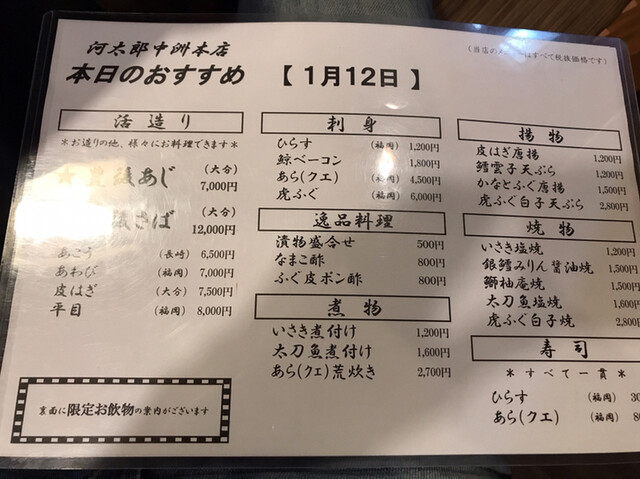 河太郎中洲本店
本日のおすすめ 【1月12日】
(当店の すべて税抜価格です)
活造り
＊お造りの他、様々にお料理できます＊
あじ (大分) 7,000円
さば (大分) 12,000円
あこう (長崎) 6,500円
あわび (福岡) 7,000円
皮はぎ (大分) 7,500円
平目 (福岡) 8,000円
裏面に限定お飲物の案内がございます
刺身
ひらす (福岡) 1,200円
鯨ベーコン 1,800円
あら(クエ) (福岡) 4,500円
虎ふぐ (福岡) 6,000円
逸品料理
漬物盛合せ 500円
なまこ酢 800円
ふぐ皮ポン酢 800円
煮物
いさき煮付け 1,200円
太刀魚煮付け 1,600円
あら(クエ)荒炊き 2,700円
揚物
皮はぎ唐揚 1,200円
鱈雲子天ぷら 1,200円
かなとふぐ唐揚 1,500円
虎ふぐ白子天ぷら 2,800円
焼物
いさき塩焼 1,200円
銀鱈みりん醤油焼 1,500円
鰤柚庵焼 1,500円
太刀魚塩焼 1,600円
虎ふぐ白子焼 2,800円
寿司
＊すべて一貫＊
ひらす (福岡)
あら(クエ) (福岡)